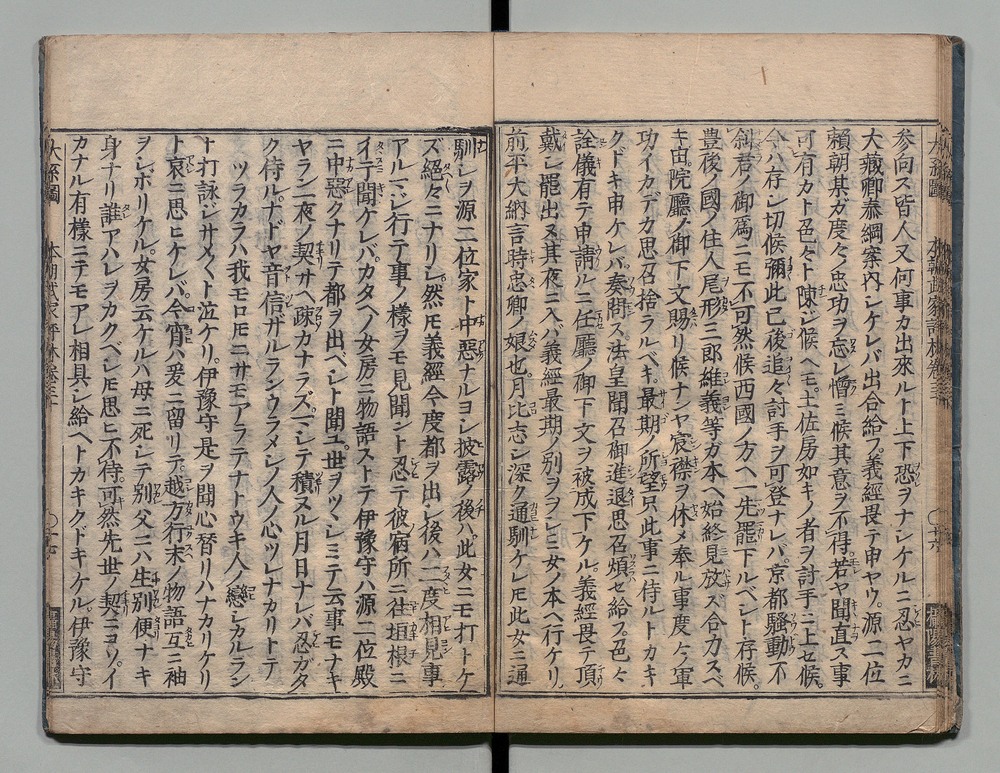 参向ス皆人又何事カ出來ルト上下恐ヲナシケルニ忍ヤカニ
大藏卿泰綱案内シケレバ出合給フ義經畏テ申ヤウ源二位
頼朝其ガ度々ノ忠功ヲ忘レ憎ミ候其意ヲ不得若ヤ聞直ス事
可有カト色々ト陳シ候ヘモ土佐房如キノ者ヲ討手ニ上セ候
今ハ存シ切候彌此已後追々討手ヲ可登ナレバ京都騷動不
斜君ノ御爲ニモ不可然候西國ノ方ヘ一先罷下ルベシト存候
豊後ノ國ノ住人尾形三郎維義等ガ本ヘ始終見放ズ合力スベ
キ由院廳ノ御下文賜リ候ナンヤ宸襟ヲ休メ奉ル事度々ノ軍
功イカデカ思召捨ラルベキ最期ノ所望只此事ニ侍ルトカキ
クドキ申ケレバ奏問ス法皇聞召御進退思召煩セ給フ色々
詮儀有テ申請ルニ任廳ノ御下文ヲ被成下ケル義經畏テ頂
戴シ罷出ヌ其夜ニ入ハ義經最期ノ別ヲヲシミ女ノ本ヘ行ケリ
前平大納言時忠卿ノ娘也月比志シ深ク通馴ケレモ此女ニ通
馴シヲ源二位家ト中惡ナルヨシ披露ノ後ハ此女ニモ打トケ
ズ絶々ニナリシ然モ義經今度都ヲ出シ後ハ二度相見事
アルマジ行テ事ノ樣ヲモ見聞ント忍テ彼宿所ニ往垣根ニ
イテ聞ケレバカタヘノ女房ニ物語ストテ伊豫守ハ源二位殿
ニ中惡クナリテ都ヲ出ベシト聞ユ世ヲツヽミテ云事モナキ
ヤラン一夜ノ契サヘ疎カナラズマシテ積ヌル月日ナレバ忍ガタ
ク侍ルナドヤ音信ザルランウラメシノ人ノ心ツレナカリトテ
ツラカラハ我モロモニサモアラテナトウキ人ノ戀シカルラン
ト打詠ジサメ〱ト泣ケリ伊豫守是ヲ聞心替リハナカリケリ
ト哀ニ思ヒケレバ今宵ハ爰ニ留リテ越方行末ノ物語互ニ袖
ヲシボリケル女房云ケルハ母ニ死シテ別父ニハ生別便ナキ
身ナリ誰アハレヲカクベシモ思ヒ不待可然先世ノ契ニコソイ
カナル有樣ニテモアレ相具シ給ヘトカキクドキケル伊豫守